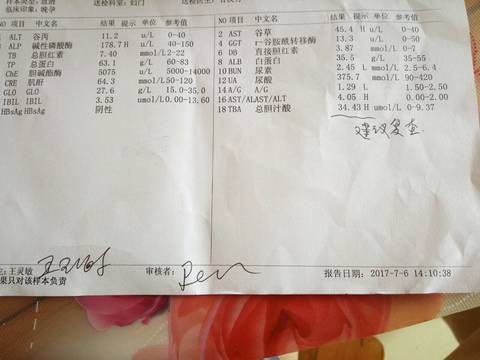 临床印象：晚孕
NO 项目 中文 结果 提示 单位 参考值 NO 项目 中文 结果 提示 单位 参考值
ALT 谷丙 11.2 u/L 0-40 2 AST 谷草 45.4 H u/L 0-40
ALP 碱性磷酸酶 178.7 H u/L 40-150 4 GGT r-谷胺酰转移酶 13.3 u/L 0-50
TB 总胆红素 7.40 mmol/L2-22 6 DB 直接胆红素 3.87 umol/L 0-7
TP 总蛋白 63.1 g/L 60-83 8 ALB 白蛋白 35.5 g/L 35-55
ChE 胆碱酯酶 5075 u/L 5000-14000 10 BUN 尿素 2.45 L mmol/L 2.5-6.4
CRE 肌酐 64.3 mmol/L50-120 12 UA 尿酸 375.7 umol/L 90-420
GLO GLO 27.6 g/L 15.0-35.0 14 A/G A/G 1.29 L 1.50-2.50
IBIL IBIL 3.53 umol/L0.00-13.60 16 AST/ALAST/ALT 4.05 H 0.00-2.00
HBsAg HBsAg 阴性 18 TBA 总胆汁酸 34.43 H umol/L 0-9.37
建议复查
王灵敏 审核者： 报告日期：2017-7-6 14:10:38
果只对该样本负责